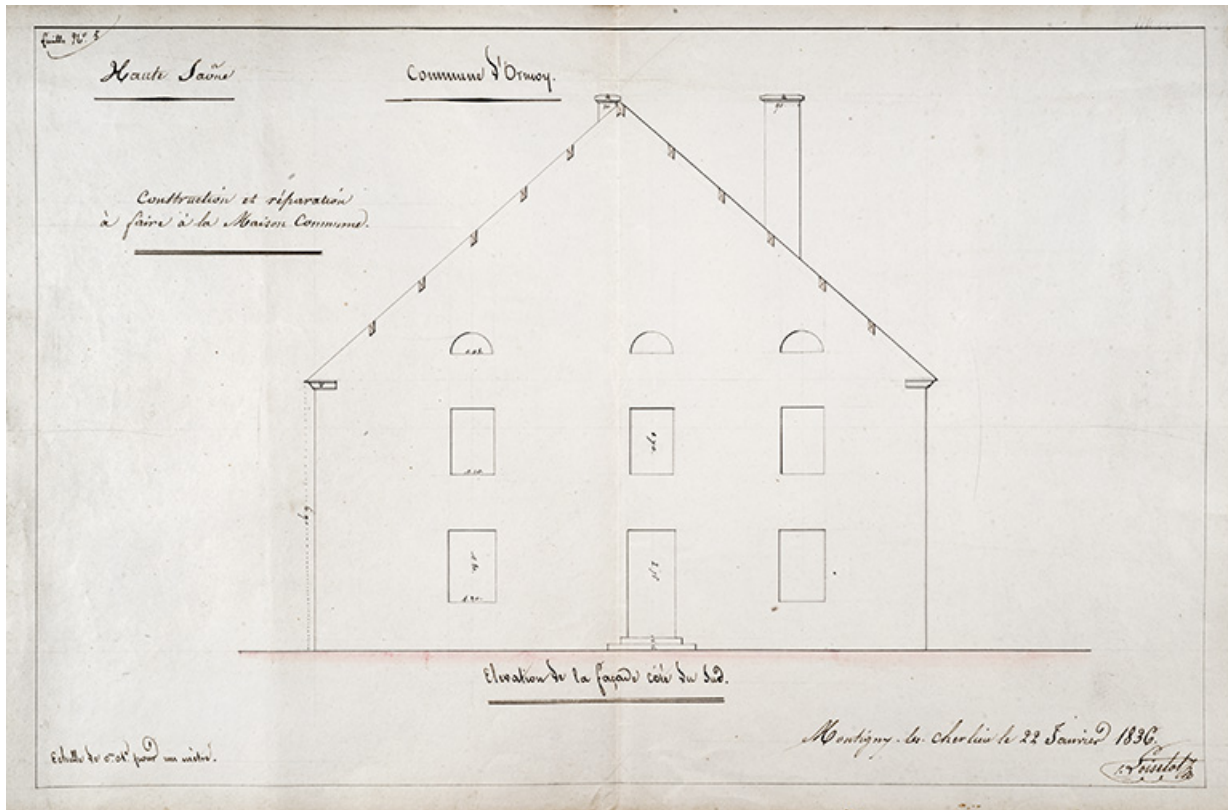 feuille Nº 5
Haute Saône
Commune d'Ormoy.
Construction et réparation
à faire à la Maison Commune.
6,90
2,50
1,20
Elevation de la façade côté du Sud.
Echelle de pour un mètre.
Montigny-les-cherlieu le 22 Janvier 1836.